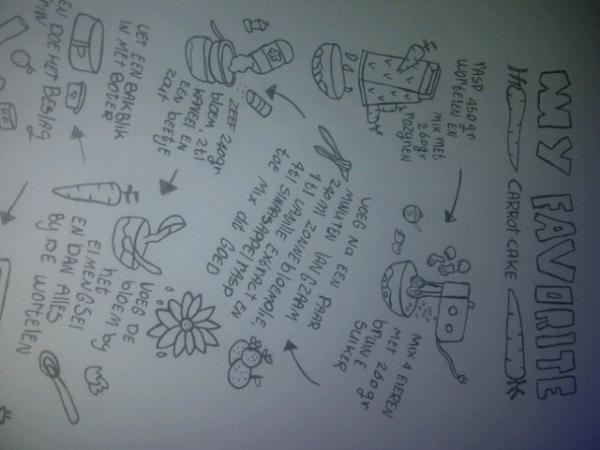 MY FAVORITE
CARROT CAKE
RASP 450gr
WORTELEN EN
MIX MET
260gr
ROZYNEN
MIX 4 EIEREN
MET 260gr
BRUINE
SUIKER
VOEG NA EEN PAAR
MINUTEN LANGZAAM
240ml ZONNEBLOEMOLIE,
1tl VANILLE EXTRACT EN
TOE MIX DIT GOED
ZEEF 240gr
bloem, 2tl
KANEEL EN
EEN beetje
ZOUT
VOEG DE
bloem by
het
EIMENGSEL
EN DAN ALLES
BY DE WORTELEN
VET EEN BAKBLIK
IN MET BOTER
EN DOE HET BESLAG